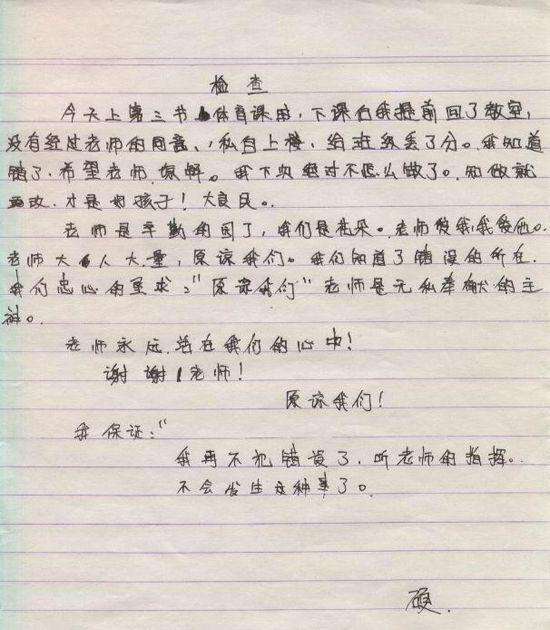 检查
今天上第三节体育课时，下课们我提前回了教室，
没有经过老师的同意、私自上楼，给班级丢了分。我知道
错了，希望老师原解。我下次绝对不怎么做了。知做就
改，才是好孩子！大良民。
老师是辛勤的园丁，我们是花朵。老师爱我，我爱他。
老师大人大量，原谅我们。我们知道了错误的所在，
我们忠心的要求：“原谅我们”老师是无私奉献的主
神。
老师永远活在我们的心中！
谢谢老师！
原谅我们！
我保证：“
我再不犯错误了，听老师的指挥。
不会发生这种事了。